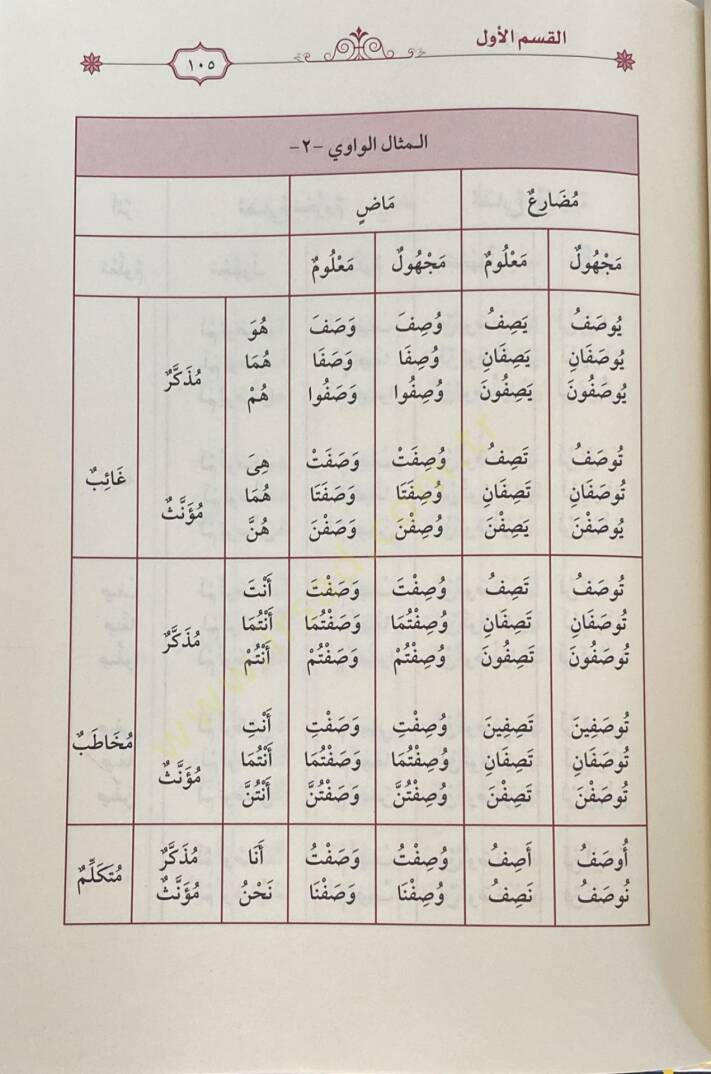 القسم الأول
١٠٥
الـمثال الواوي -٢-
مُضَارِعٌ مَاضٍ
مَجْهُولٌ مَعْلُومٌ مَجْهُولٌ مَعْلُومٌ
يُوصَفُ يَصِفُ وُصِفَ وَصَفَ هُوَ
يُوصَفَانِ يَصِفَانِ وُصِفَا وَصَفَا هُمَا مُذَكَّرٌ
يُوصَفُونَ يَصِفُونَ وُصِفُوا وَصَفُوا هُمْ
تُوصَفُ تَصِفُ وُصِفَتْ وَصَفَتْ هِىَ غَائِبٌ
تُوصَفَانِ تَصِفَانِ وُصِفَتَا وَصَفَتَا هُمَا مُؤَنَّثٌ
يُوصَفْنَ يَصِفْنَ وُصِفْنَ وَصَفْنَ هُنَّ
تُوصَفُ تَصِفُ وُصِفْتَ وَصَفْتَ أَنْتَ
تُوصَفَانِ تَصِفَانِ وُصِفْتُمَا وَصَفْتُمَا أَنْتُمَا مُذَكَّرٌ
تُوصَفُونَ تَصِفُونَ وُصِفْتُمْ وَصَفْتُمْ أَنْتُمْ
تُوصَفِينَ تَصِفِينَ وُصِفْتِ وَصَفْتِ أَنْتِ مُخَاطَبٌ
تُوصَفَانِ تَصِفَانِ وُصِفْتُمَا وَصَفْتُمَا أَنْتُمَا مُؤَنَّثٌ
تُوصَفْنَ تَصِفْنَ وُصِفْتُنَّ وَصَفْتُنَّ أَنْتُنَّ
أُوصَفُ أَصِفُ وُصِفْتُ وَصَفْتُ أَنَا مُذَكَّرٌ مُتَكَلِّمٌ
نُوصَفُ نَصِفُ وُصِفْنَا وَصَفْنَا نَحْنُ مُؤَنَّثٌ